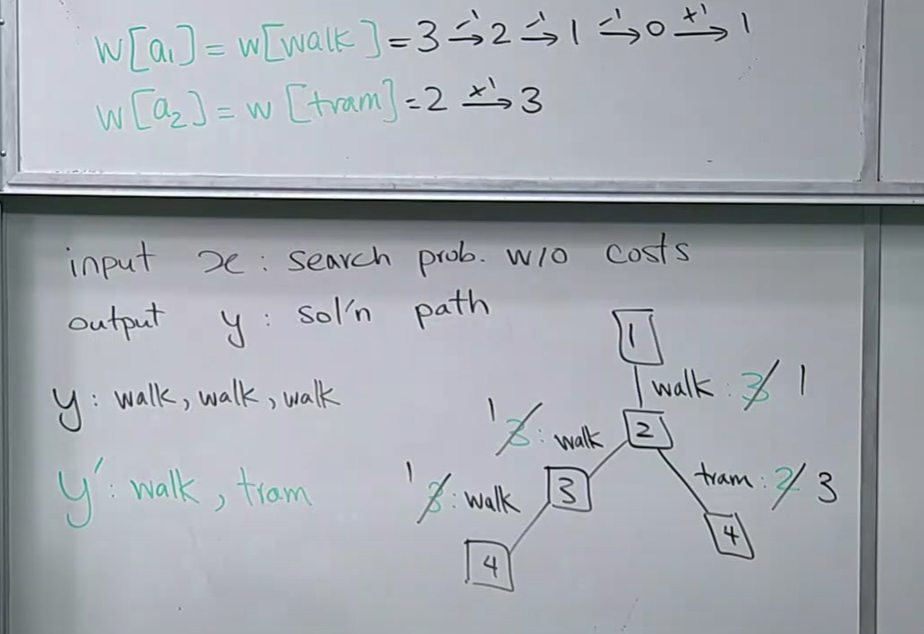 w[a₁] = w[walk] = 3 -1→ 2 -1→ 1 -1→ 0 +1→ 1
w[a₂] = w[tram] = 2 +1→ 3
input x : search prob. w/o costs
output y : sol'n path
1
y : walk, walk, walk
walk : 3 1
1 3 : walk
2
y' : walk, tram
1 3 : walk
3
tram : 2 3
4
4